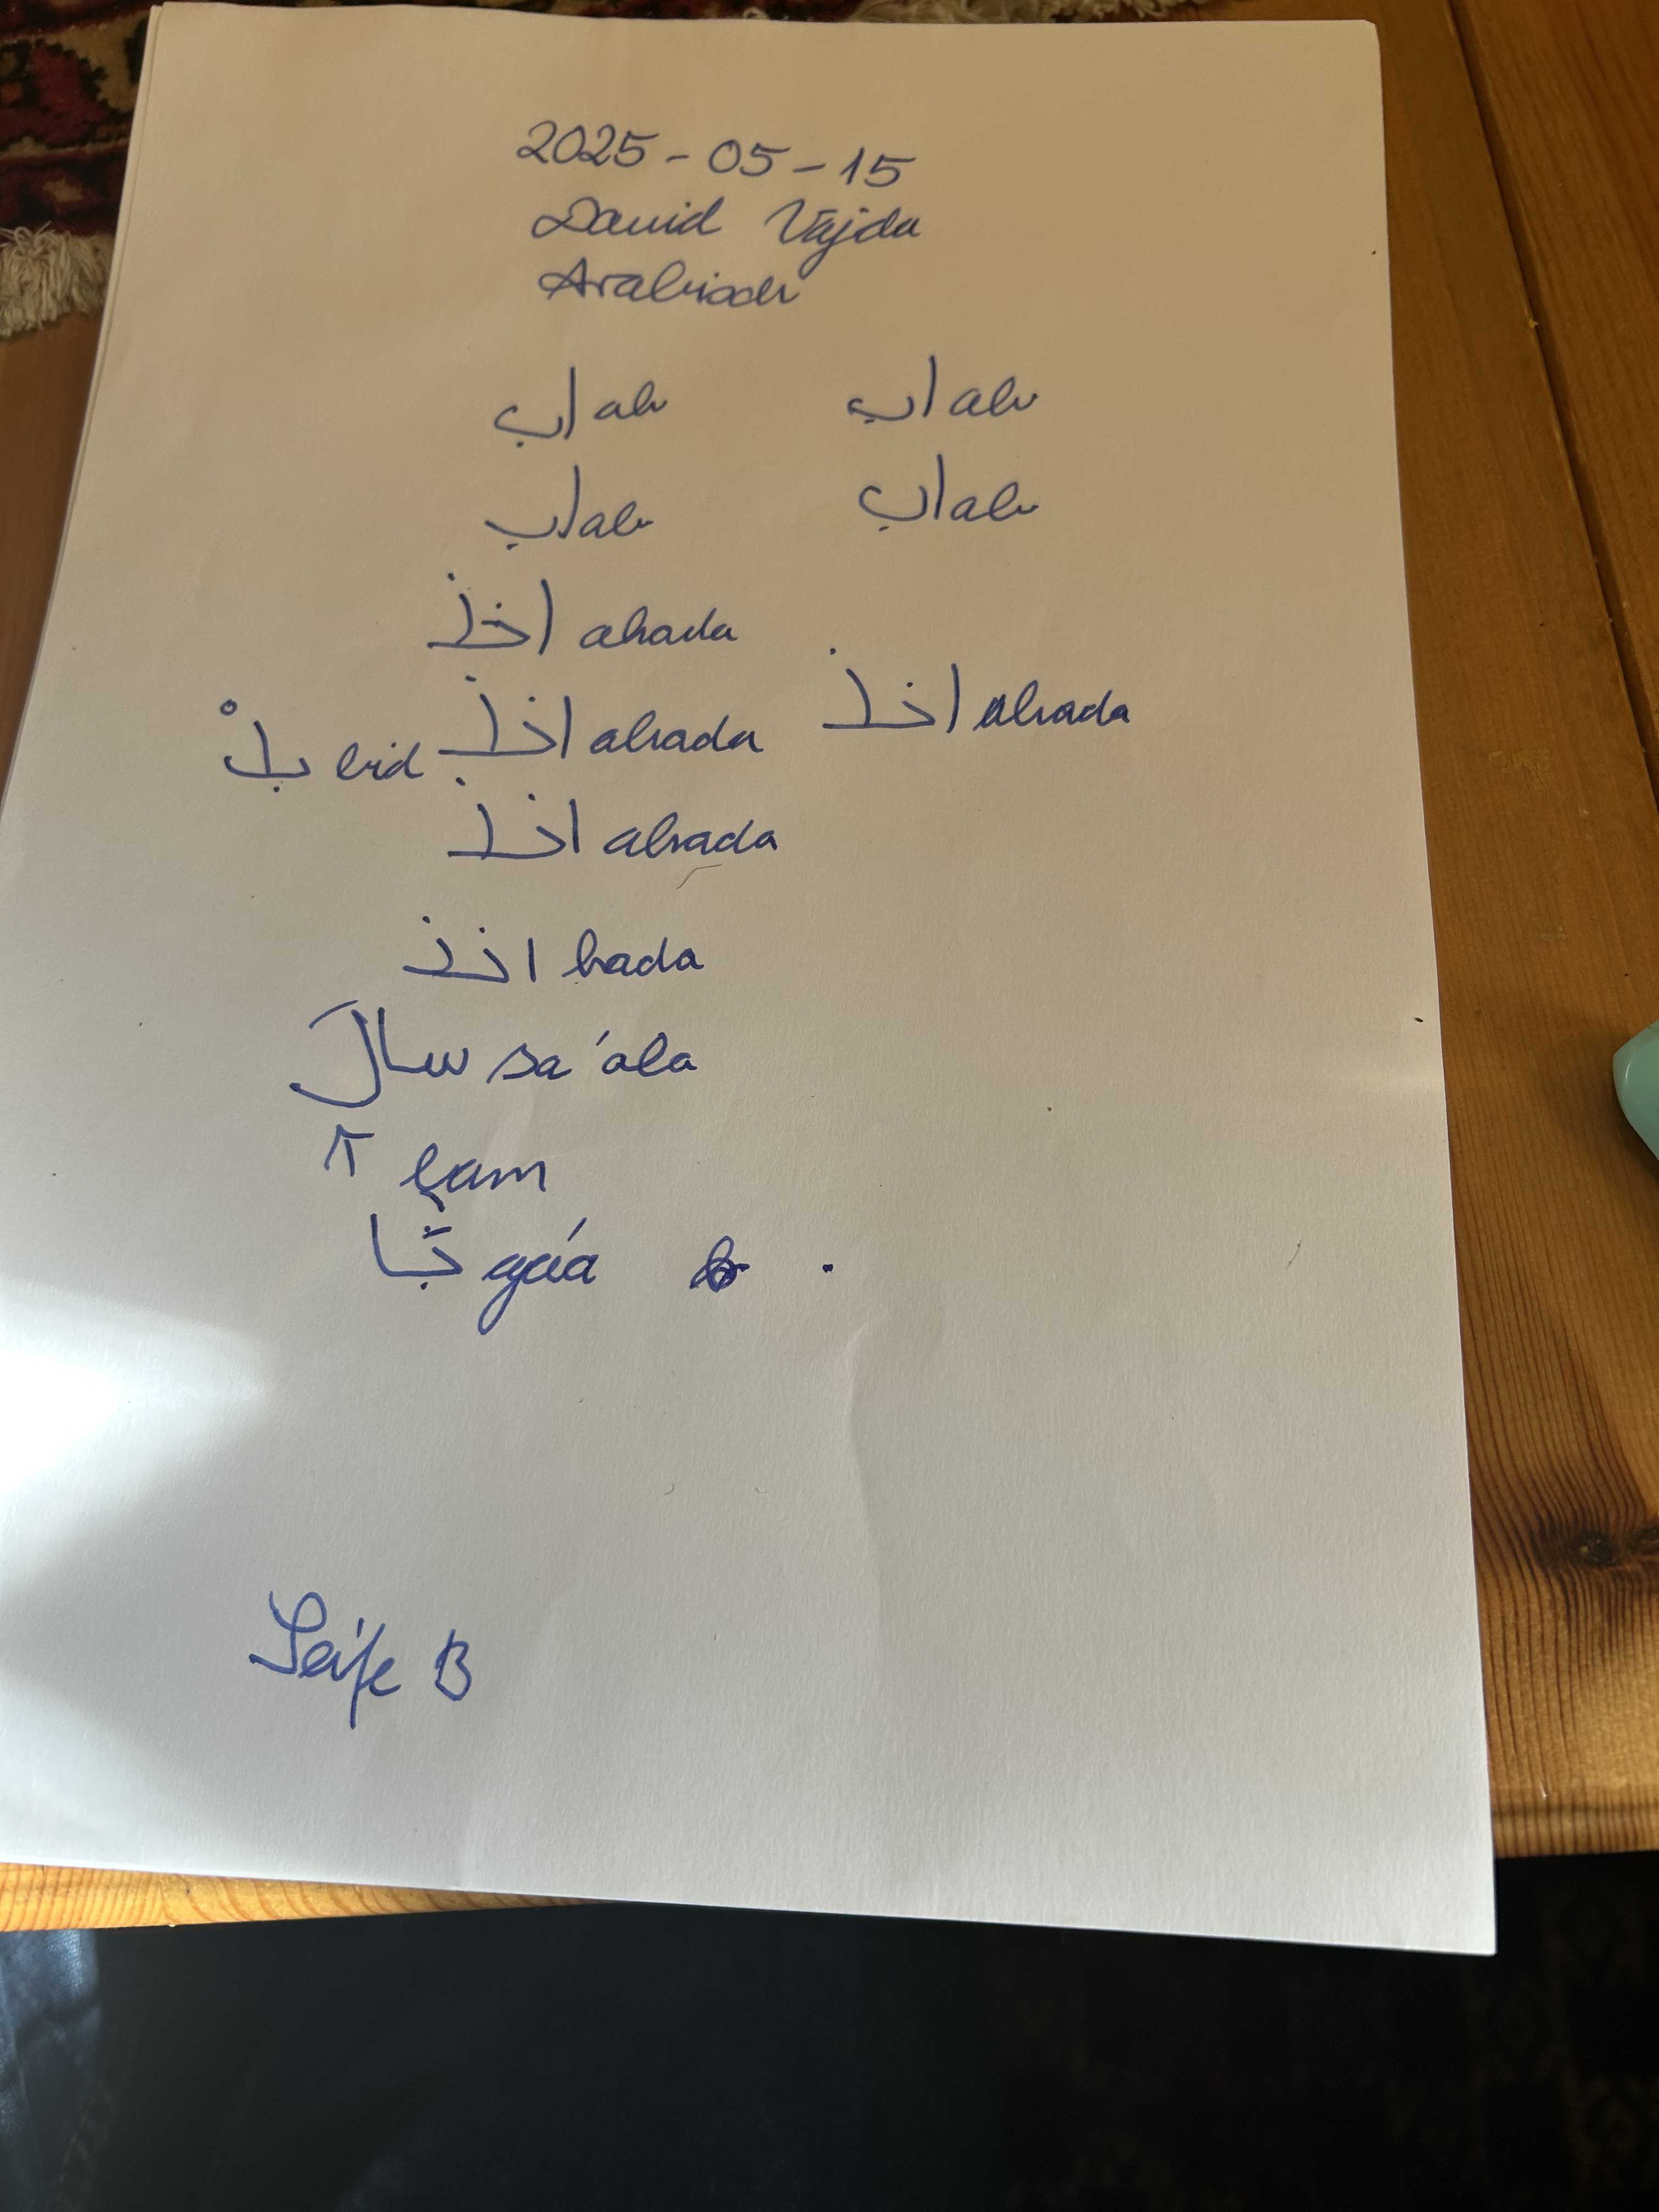 2025-05-15
David Vajda
Arabisch
اب ab اب ab
اب ab اب ab
اخذ ahada
اخذ ahada اخذ ahada
بذْ bid
اخذ ahada
اخذ hada
سالَ sa'ala
çam
gáa
Seife B